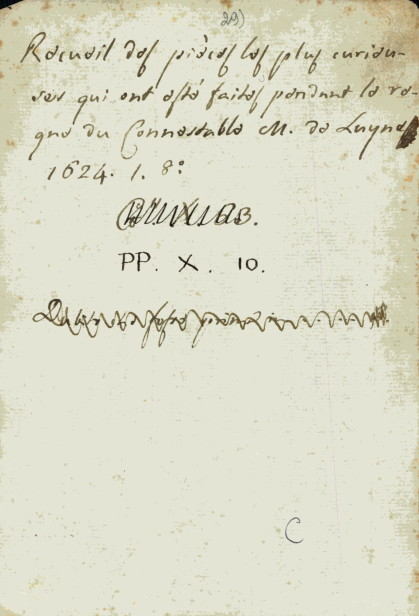 29)
Recueil des pièces les plus curieu-
ses qui ont esté faites pendant le re-
gne du Connestable M. de Luynes
1624. 1. 8°
PP. X. 10.
C